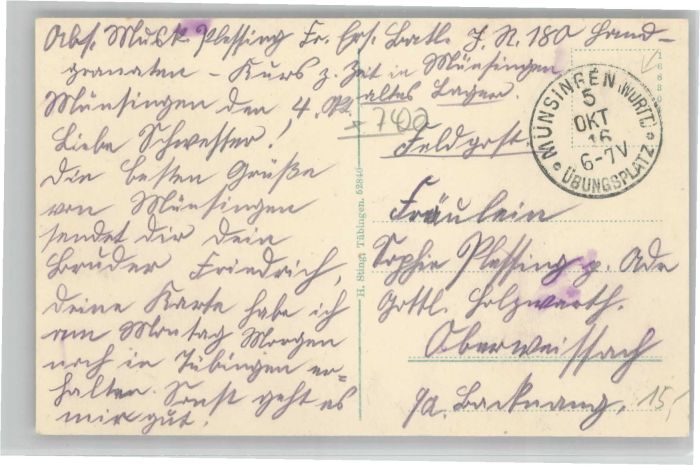 Abs. Musk. Plessing Fr. Ers. Batl. J. R. 180 Hand-
granaten - Kurs z. Zeit in Münsingen
altes Lager.
Münsingen den 4.
Liebe Schwester!
Die besten Grüße
von Münsingen
sendet dir dein
Bruder Friedrich,
deine Karte habe ich
am Montag Morgen
noch in Tübingen er=
halten. Sonst geht es
mir gut.
H. Sting, Tübingen. 52846
Feldpost.
MÜNSINGEN (WÜRTT.)
5
OKT
16
6-7V
ÜBUNGSPLATZ
Fräulein
Sophie Plessing z. Ade
Gottl. Holzwarth.
Oberweissach
Backnang.
15,-